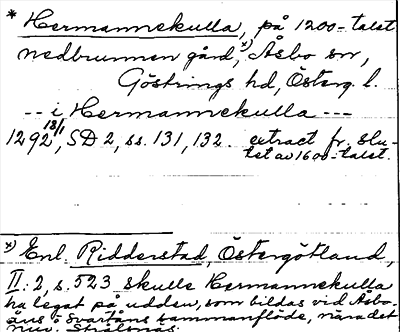 * Hermannekulla, på 1200-talet
nedbrunnen gård, x) Åsbo sn,
Göstrings hd, Österg. l.
-- i Hermannekulla ---
1292 18/1, SD 2, ss. 131, 132 extract fr. slu-
tet av 1600-talet.
x) Enl. Ridderstad, Östergötland,
II: 2, s. 523 skulle Hermannekulla
ha legat på udden, som bildas vid Åsbo-
åns o Svartåns sammanflöde, nära det
nuv. Strålsnäs.